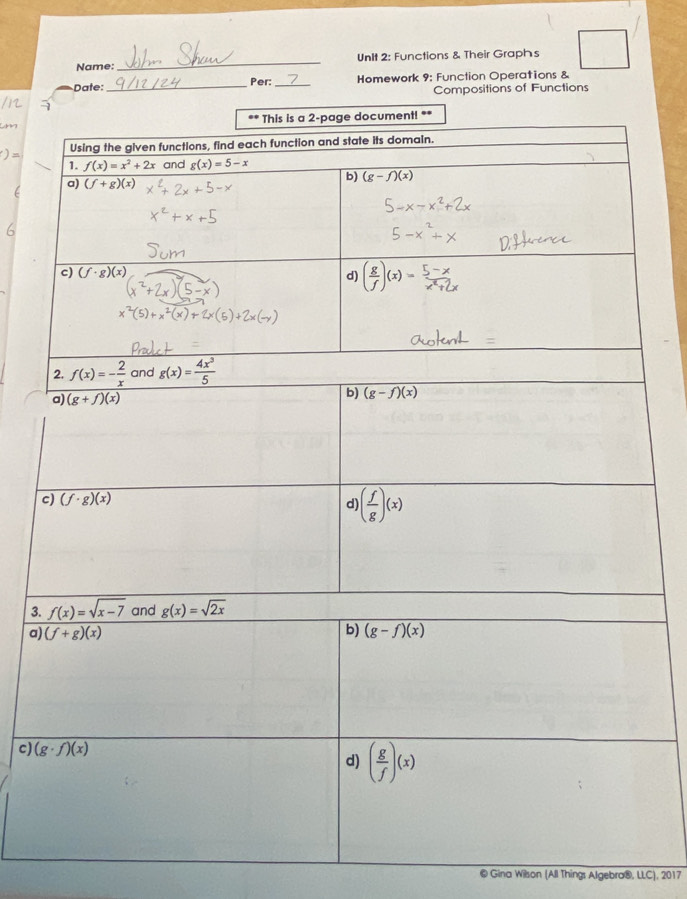 Name: John Shaw
Unit 2: Functions & Their Graphs
Date: 9/12/24 Per: 7
Homework 9: Function Operations &
Compositions of Functions
** This is a 2-page document! **
Using the given functions, find each function and state its domain.
1. f(x) = x² + 2x and g(x) = 5 − x
a) (f + g)(x) x² + 2x + 5 − x
x² + x + 5
Sum
b) (g − f)(x)
5 − x − x² + 2x
5 − x² + x
Difference
c) (f · g)(x)
(x² + 2x)(5 − x)
x²(5) + x²(x) + 2x(5) + 2x(−x)
Product =
d) (g/f)(x) = 5 − x / x² + 2x
=
2. f(x) = −2/x and g(x) = 4x³/5
a) (g + f)(x)
b) (g − f)(x)
c) (f · g)(x)
d) (f/g)(x)
3. f(x) = √(x − 7) and g(x) = √(2x)
a) (f + g)(x)
b) (g − f)(x)
c) (g · f)(x)
d) (g/f)(x)
© Gina Wilson (All Things Algebra®, LLC), 2017